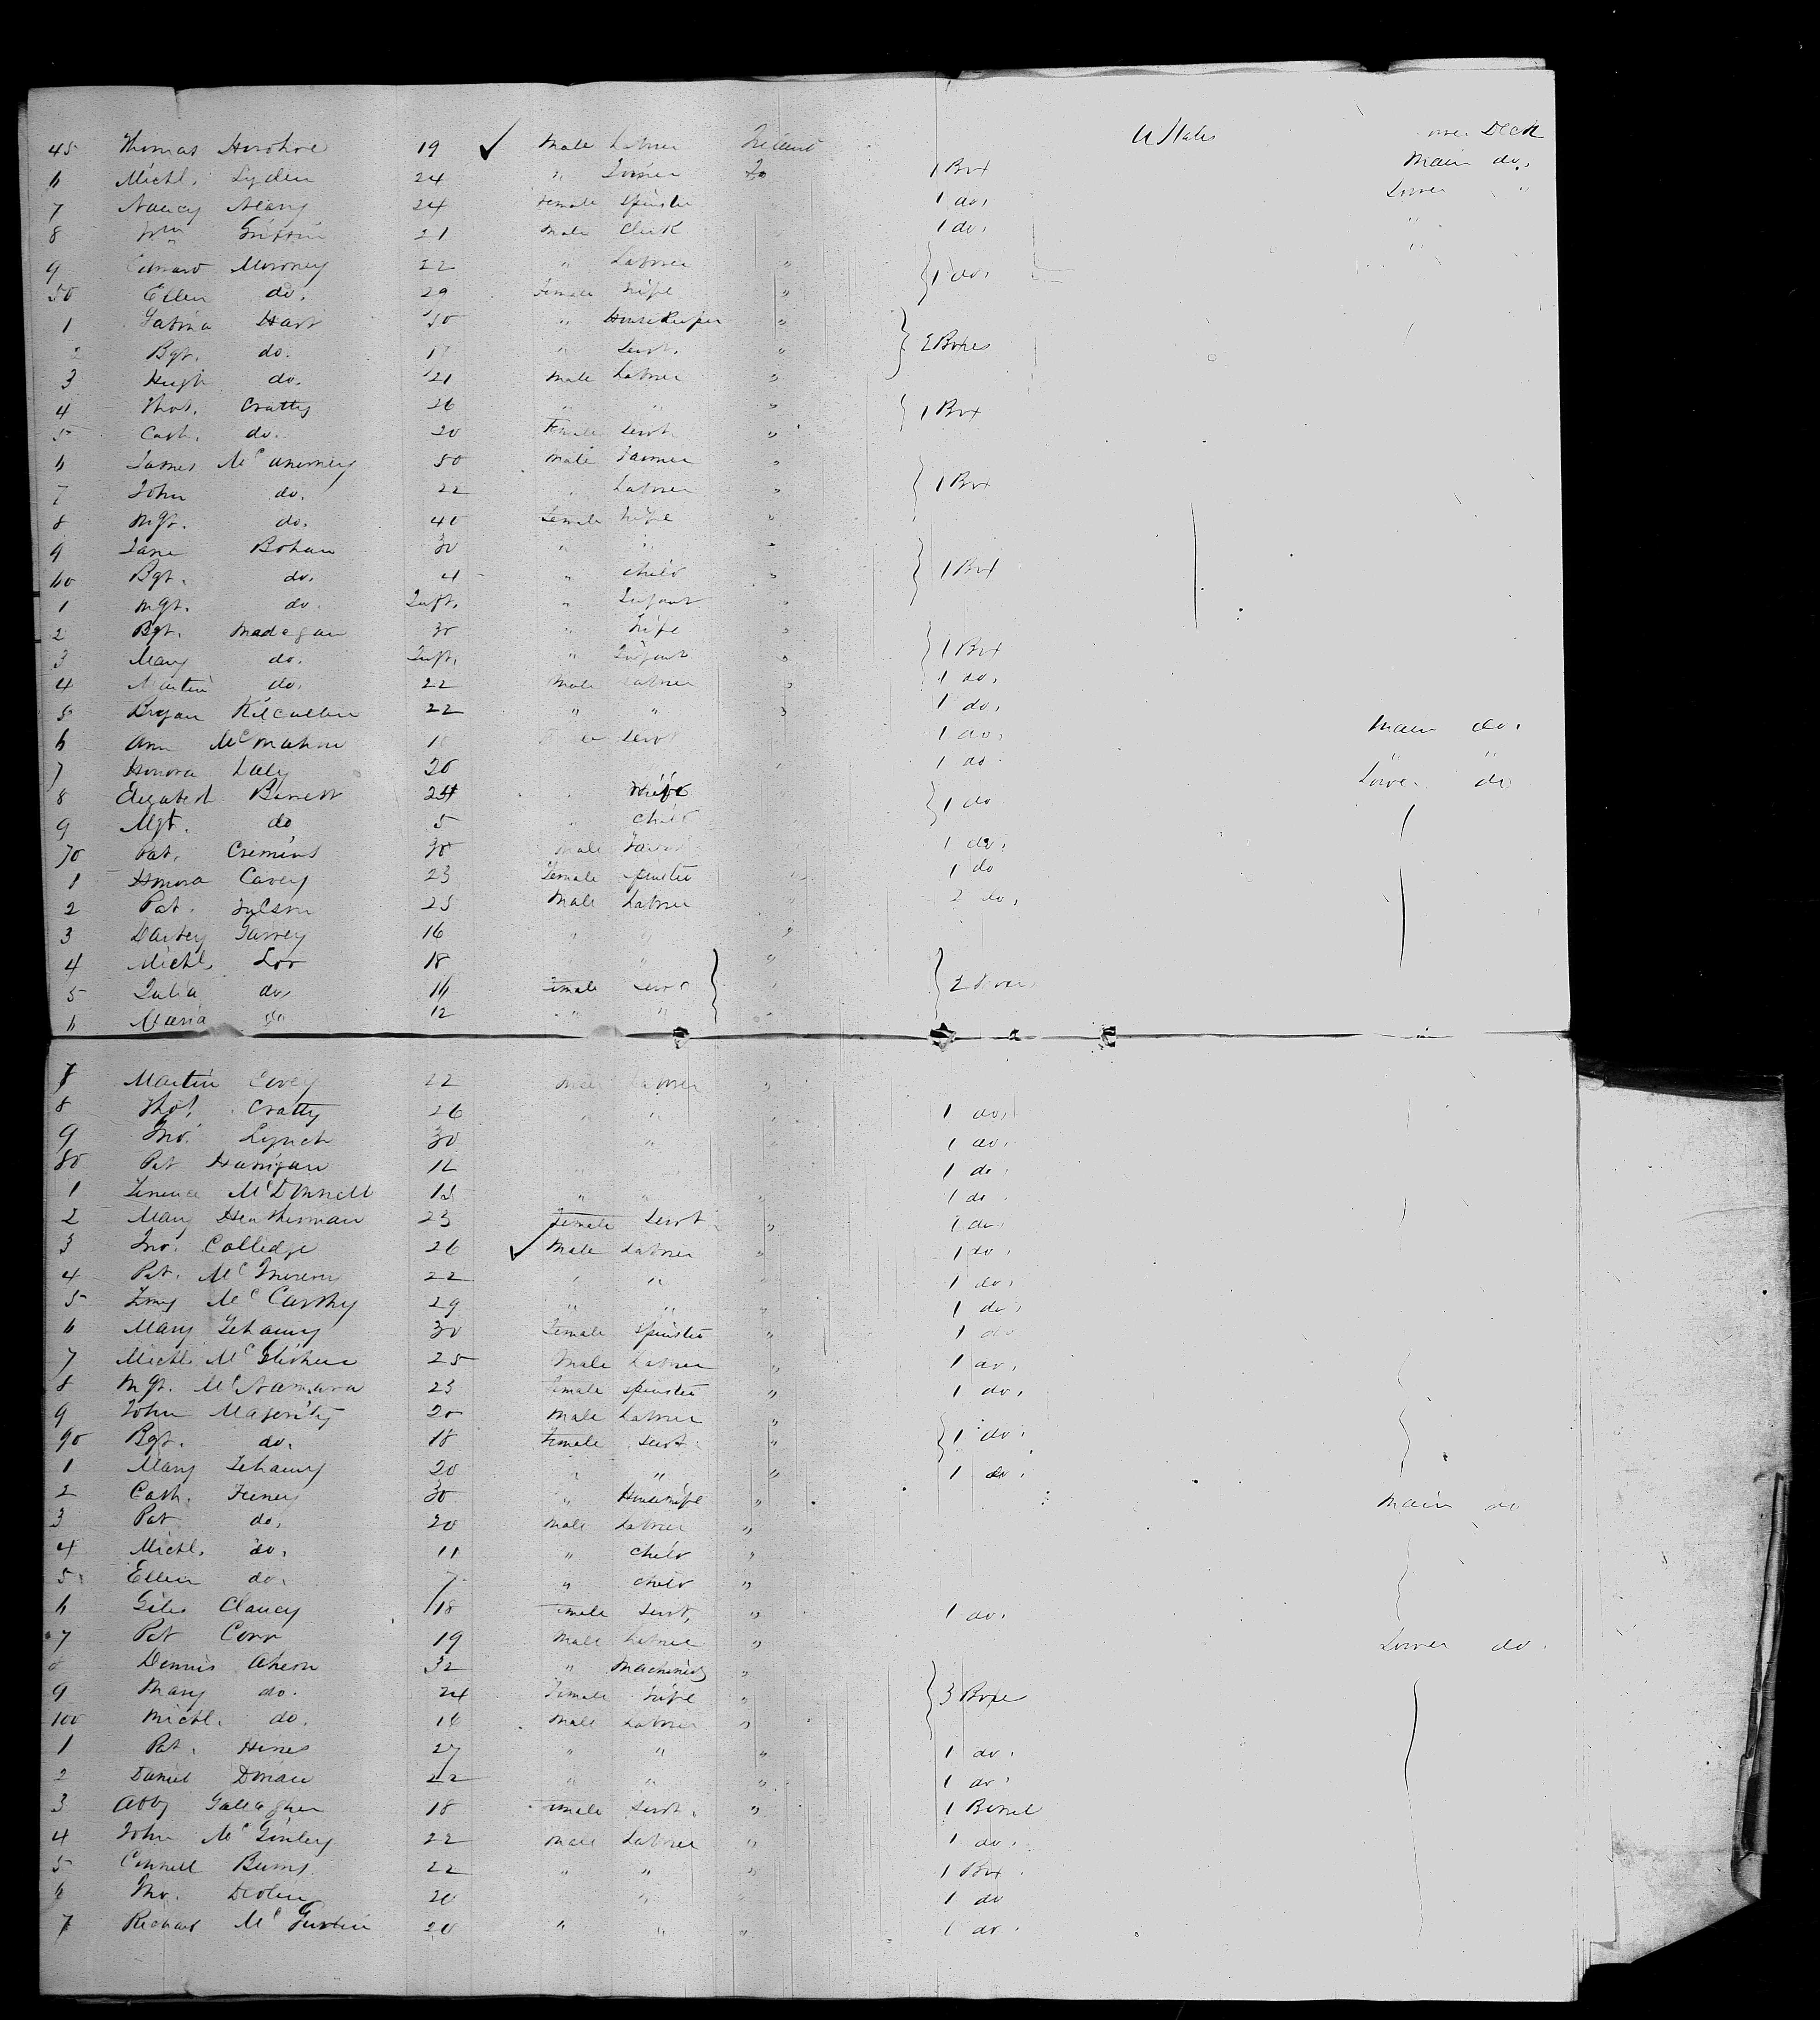 45 Thomas 19 ✓ Male Labrer Ireland U States Lower Deck
6 Michl. Lyden 24 " Joiner Do 1 Box Main do.
7 Nancy Neary 24 Female Spinster 1 do. Lower "
8 Wm Griffin 21 Male Clerk 1 do. "
9 Edward Moroney 22 " Labrer " 1 do. "
50 Ellen do. 29 Female Wife "
1 Hart 50 " House Keeper "
2 Bgt. do. 17 " Servt. " 2 Boxes
3 Hugh do. 21 Male Labrer "
4 Thos. Cratty 26 " " " 1 Box
5 Cath. do. 20 Female Servt. "
6 James McAnerney 50 Male Farmer "
7 John do. 22 " Labrer " 1 Box
8 Mgt. do. 40 Female Wife "
9 Jane Bohan 30 " " "
60 Bgt. do. 4 " Child " 1 Box
1 Mgt. do. Inft. " Infant "
2 Bgt. Madegan 30 " Wife "
3 Mary do. Inft. " Infant " 1 Box
4 Martin do. 22 Male Labrer " 1 do.
5 Bryan Kilcullen 22 " " " 1 do.
6 Ann McMahon Servt 1 do. Main do.
7 Honora Daly 20 1 do. " "
8 Elizabeth Barrett 24 " Wife 1 do Lower do
9 Mgt. do 5 " Child
70 Pat. Cremins 30 Male 1 do.
1 Honora Cavey 23 Female Spinster 1 do
2 Pat. 25 Male Labrer " 2 do.
3 Darbey Garvey 16 " " "
4 Michl. 18 " "
5 Julia do. 16 Female Servt " 2 Boxes
6 Maria do 12 " "
7 Martin Covey 22 Male Labrer "
8 Thos. Cratty 26 " " 1 do.
9 Jno. Lynch 30 " 1 do.
80 Pat Hannigan 1 do.
1 Terence McDonnell " " " 1 do.
2 Mary Heatherman 23 Female Servt. " 1 do.
3 Jno. Colledge 26 ✓ Male Labrer " 1 do.
4 Pat. 22 " " 1 do.
5 McCarthy 29 " " " 1 do.
6 Mary Gehaney 30 Female Spinster " 1 do
7 Michl. 25 Male Labrer " 1 do.
8 Mgt. McNamara 23 Female Spinster " 1 do.
9 John Magerity 20 Male Labrer "
90 Bgt. do. 18 Female Servt. " 1 do.
1 Mary Gehaney 20 " " " 1 do.
2 Cath. Feeney 30 " Housewife " Main do
3 Pat do. 20 Male Labrer "
4 Michl. do. 11 " Child "
5 Ellen do. 7 " Child "
6 Giles Clancy 18 Female Servt. " 1 do.
7 Pat Corr 19 Male Labrer " Lower do.
8 Dennis Ahern 32 " Machinist "
9 Mary do. 24 Female Wife " 3 Boxes
100 Michl. do. Male Labrer "
1 Pat. Hines 27 " " " 1 do.
2 Daniel Doran 22 " " " 1 do.
3 Abby Gallagher 18 Female Servt. " 1 Barrel
4 John McGinley 22 Male Labrer " 1 do.
5 Connell Burns 22 " " " 1 Box
6 Jno. 20 " " 1 do
7 Richard 20 " " " 1 do.